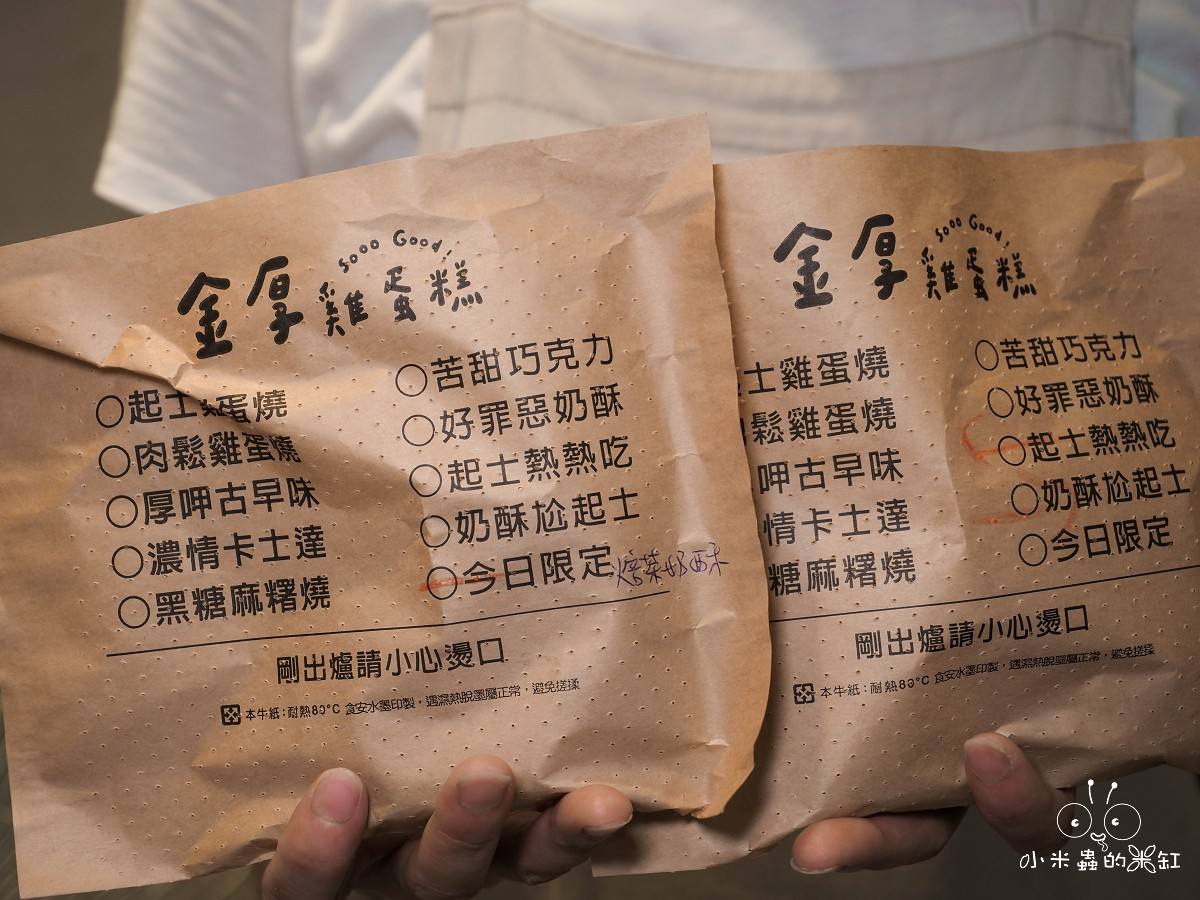 Sooo Good!
金厚雞蛋糕
○起士雞蛋燒
○肉鬆雞蛋燒
○厚呷古早味
○濃情卡士達
○黑糖麻糬燒
○苦甜巧克力
○好罪惡奶酥
○起士熱熱吃
○奶酥尬起士
○今日限定 焙茶奶酥
剛出爐請小心燙口
本牛紙:耐熱80°C 食安水墨印製,遇濕熱脫墨屬正常,避免搓揉
Sooo Good!
金厚雞蛋糕
士雞蛋燒
鬆雞蛋燒
呷古早味
情卡士達
糖麻糬燒
○苦甜巧克力
○好罪惡奶酥
○起士熱熱吃
○奶酥尬起士
○今日限定
剛出爐請小心燙口
本牛紙:耐熱80°C 食安水墨印製,遇濕熱脫墨屬正常,避免搓揉
小米蟲的米缸